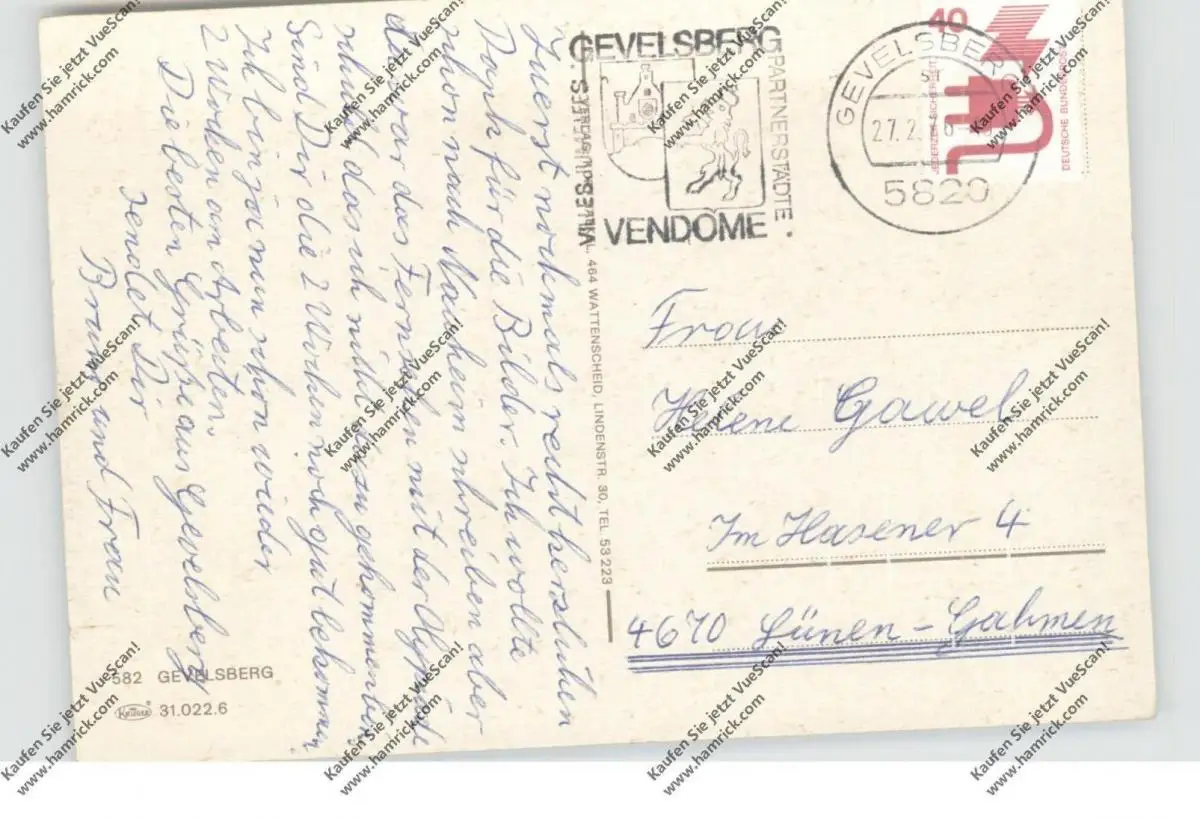 GEVELSBERG
PARTNERSTÄDTE
VENDÔME
GEVELSBERG
27.2.
5820
40
DEUTSCHE BUNDESPOST
Zuerst nochmals recht herzlichen
Dank für die Bilder. Ich wollte
schon nach Mannheim schreiben aber
da war das Fernsehen mit der Olympiade
schuld das ich nicht dazu gekommen bin.
Sind Dir die 2 Wochen noch gut bekommen
Ich bin ja nun schon wieder
2 Wochen am Arbeiten.
Die besten Grüße aus Gevelsberg
sendet Dir
Bruno und Frau
464 WATTENSCHEID, LINDENSTR. 30, TEL. 53223
Frau
Helene Gawel
Im Hasener 4
4670 Lünen-Gahmen
582 GEVELSBERG
Krüger 31.022.6
Kaufen Sie jetzt VueScan!
www.hamrick.com